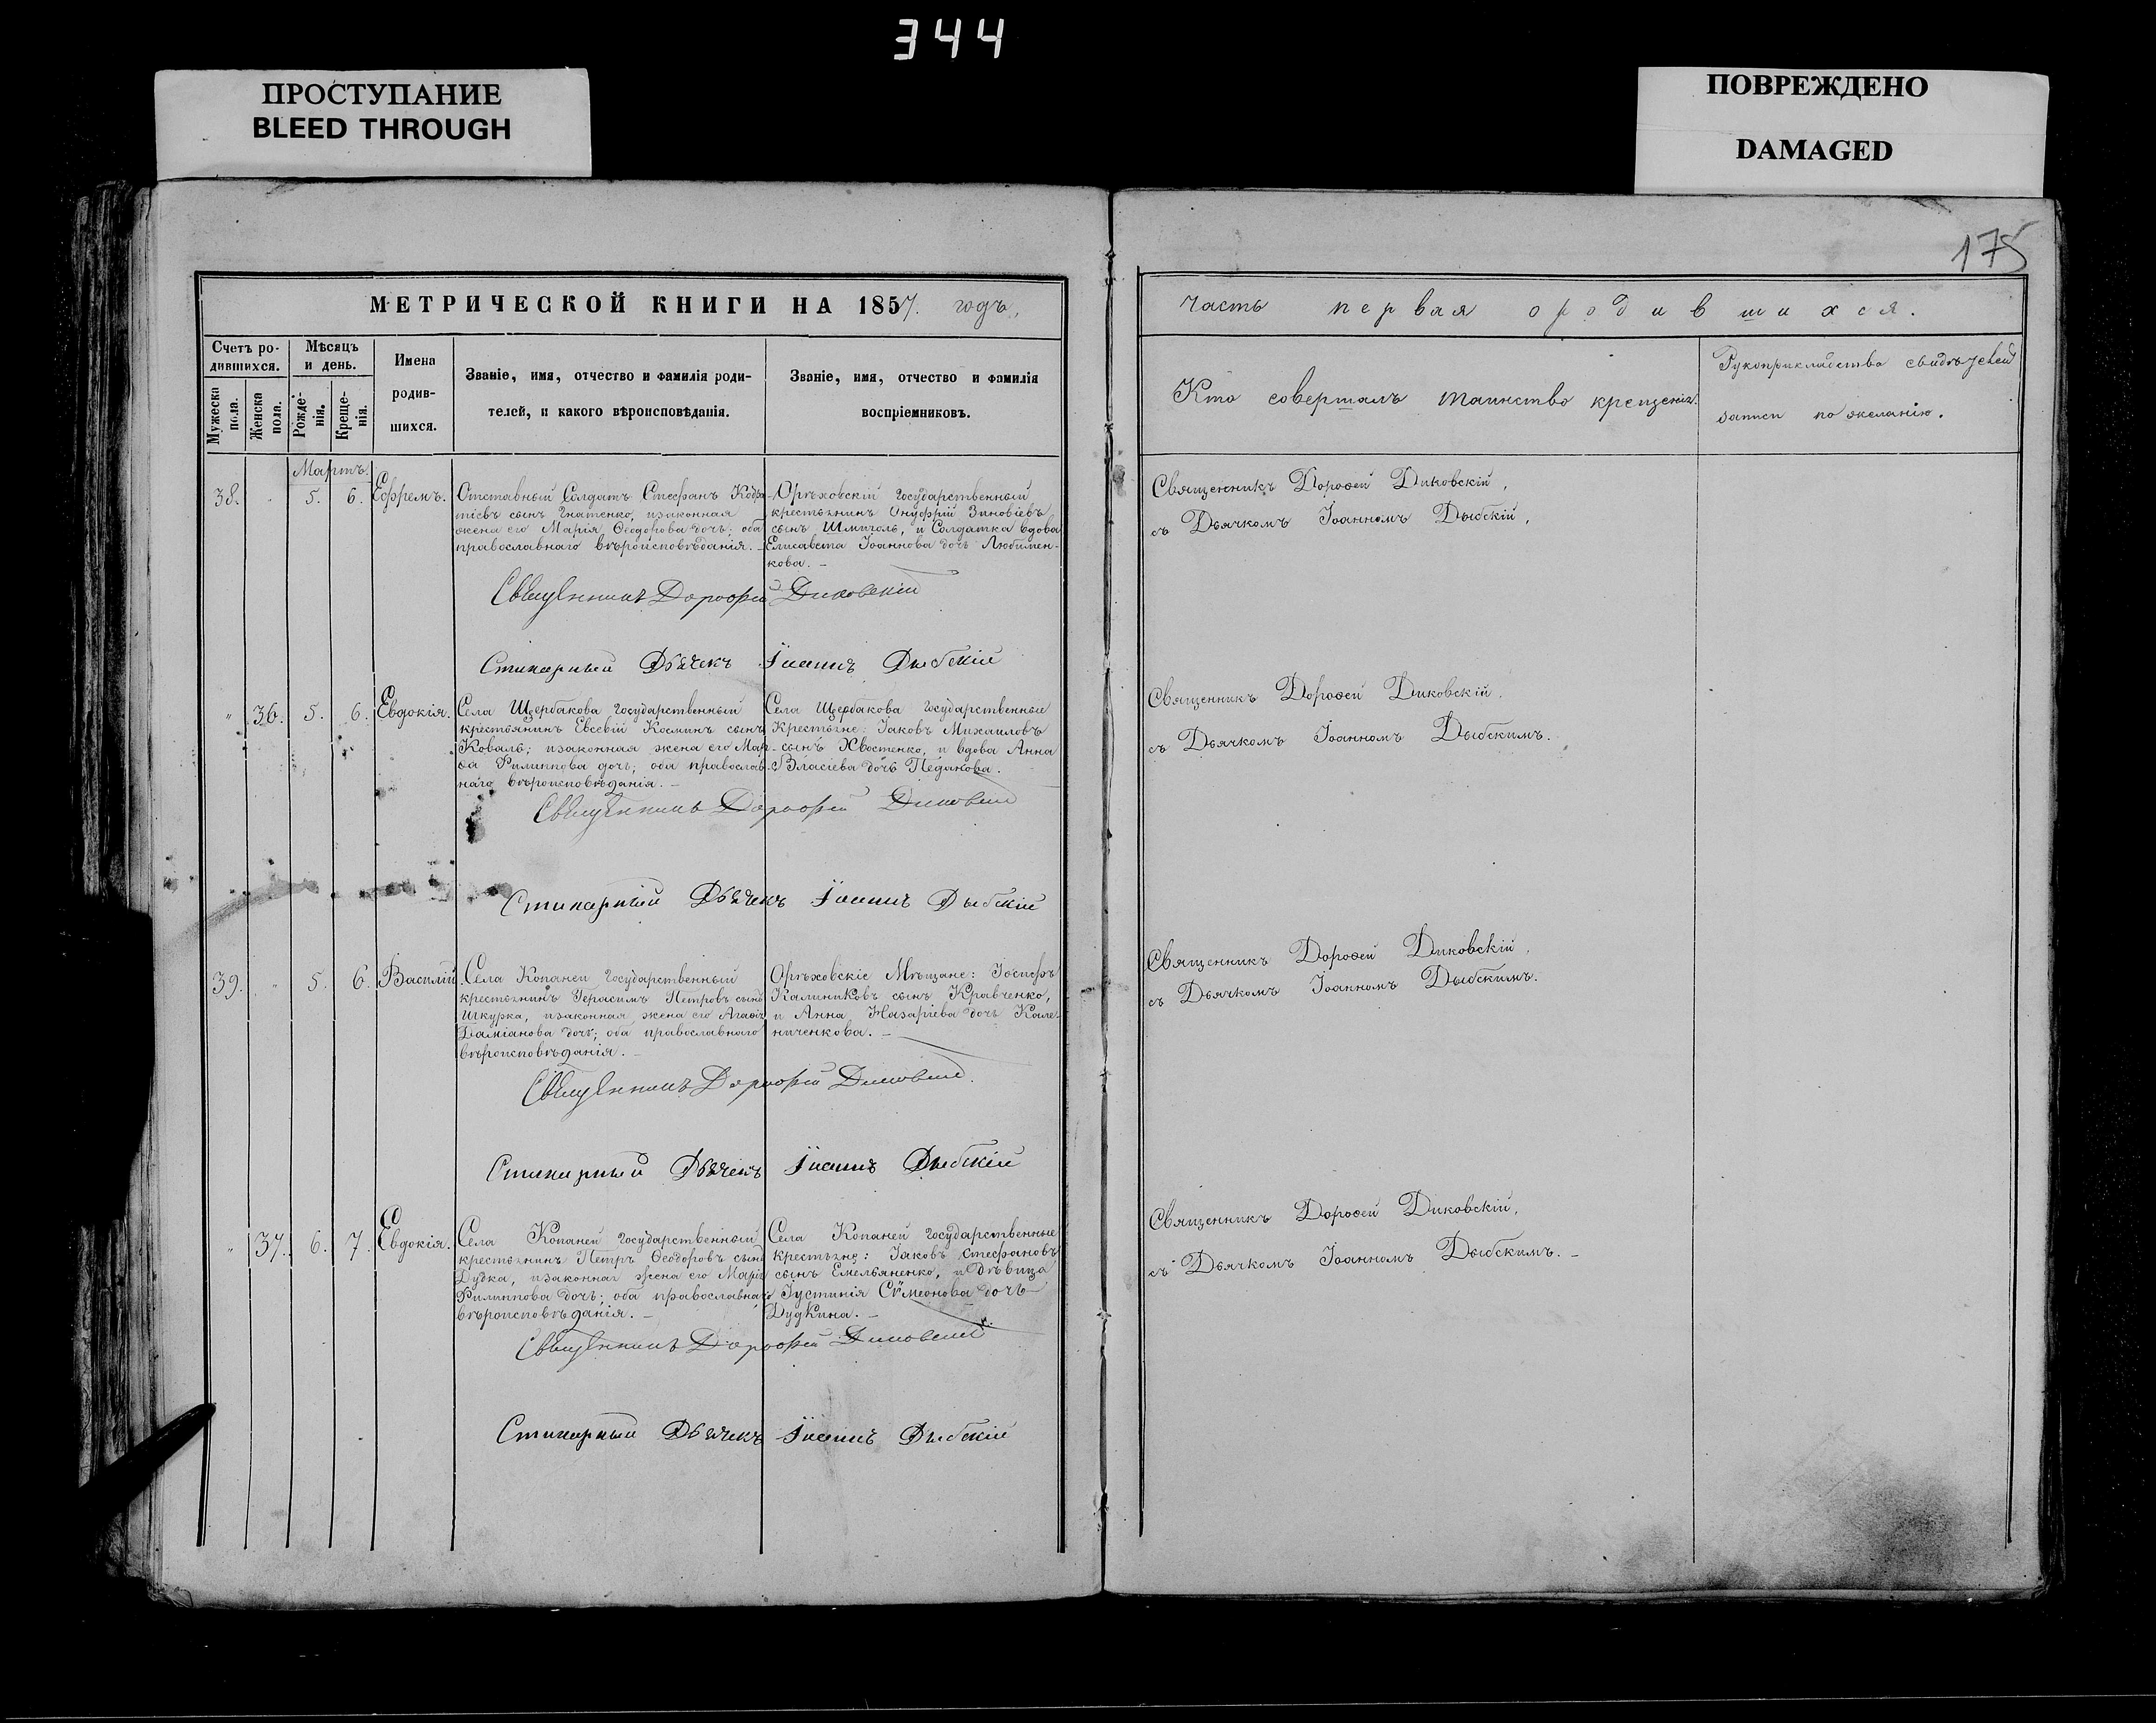 344
ПРОСТУПАНИЕ
BLEED THROUGH
ПОВРЕЖДЕНО
DAMAGED
175
МЕТРИЧЕСКОЙ КНИГИ НА 1857. годъ,
Счетъ ро-
дившихся.
Мужеска
пола.
Женска
пола.
Мѣсяцъ
и день.
Рожде-
нія.
Креще-
нія.
Имена
родив-
шихся.
Званіе, имя, отчество и фамилія роди-
телей, и какого вѣроисповѣданія.
Званіе, имя, отчество и фамилія
воспріемниковъ.
Мартъ.
38. " 5. 6. Ефремъ.
Отставный Солдатъ Стефанъ Кодра-
тіевъ сынъ Гнатенко, изаконная
жена его Марія Ѳеодорова дочь; оба
православнаго вѣроисповѣданія. —
Орѣховскій государственный
крестьянинъ Онуфрій Зиновіевъ
сынъ Шмиголь, и Солдатка вдова
Елисавета Іоаннова дочь Любимен-
кова. —
Священникъ Дорофей Диковскій
Стихарный Дьячекъ Іоаннъ Дыбскій
" 36. 5. 6. Евдокія.
Села Щербакова государственный
крестьянинъ Евсевій Косминъ сынъ
Коваль; изаконная жена его Мар-
ѳа Филиппова дочь; оба православ-
наго вѣроисповѣданія. —
Села Щербакова государственные
Крестьяне: Іаковъ Михаиловъ
сынъ Хвостенко, и вдова Анна
Власіева дочь Педакова.
Священникъ Дорофей Диковскій
Стихарный Дьячекъ Іоаннъ Дыбскій
39. " 5. 6. Василій.
Села Копаней государственный
крестьянинъ Герасимъ Петровъ сынъ
Шкурка, изаконная жена его Агаѳія
Даміанова дочь; оба православнаго
вѣроисповѣданія. —
Орѣховскіе Мѣщане: Іосифъ
Калиниковъ сынъ Кравченко,
и Анна Назаріева дочь Кале-
ниченкова. —
Священникъ Дорофей Диковскій
Стихарный Дьячекъ Іоаннъ Дыбскій
" 37. 6. 7. Евдокія.
Села Копаней государственный
крестьянинъ Петръ Ѳеодоровъ сынъ
Дудка, изаконная жена его Марія
Филиппова дочь; оба православнаго
вѣроисповѣданія. —
Села Копаней государственные
крестьяне: Іаковъ Стефановъ
сынъ Емельяненко, и дѣвица
Іустинія Сѵмеонова дочь
Дудкина. —
Священникъ Дорофей Диковскій
Стихарный Дьячекъ Іоаннъ Дыбскій
часть первая о родившихся.
Кто совершалъ таинство крещенія.
Рукоприкладство свидѣтелей
записи по желанію.
Священникъ Дороѳей Диковскій,
съ Дьячкомъ Іоанномъ Дыбскій,
Священникъ Дороѳей Диковскій,
съ Дьячкомъ Іоанномъ Дыбскимъ.
Священникъ Дороѳей Диковскій,
съ Дьячкомъ Іоанномъ Дыбскимъ.
Священникъ Дороѳей Диковскій,
съ Дьячкомъ Іоанномъ Дыбскимъ. —